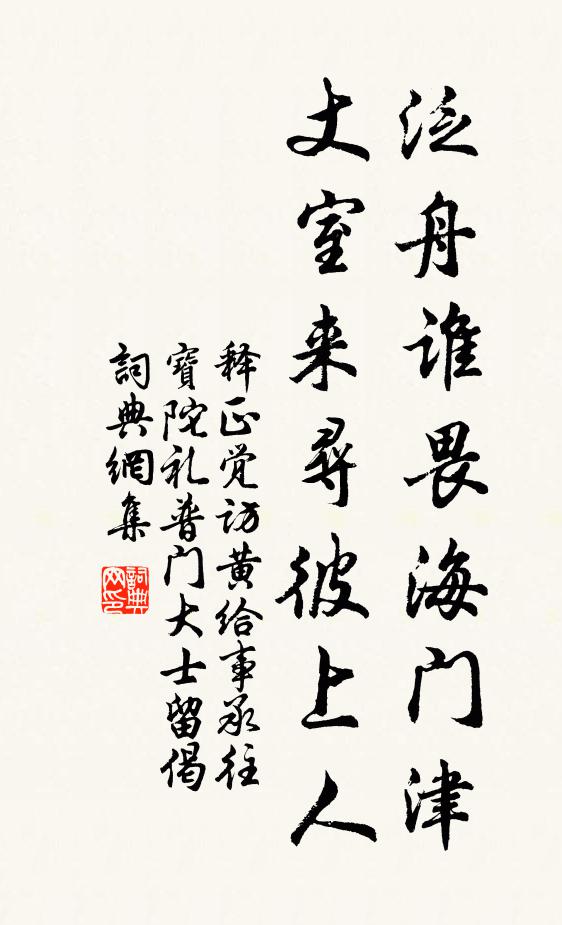 泛舟谁畏海门津
丈室来寻彼上人
释正觉访黄给事承往
寶陀礼普门大士留偈
詞典網集
詞典网印